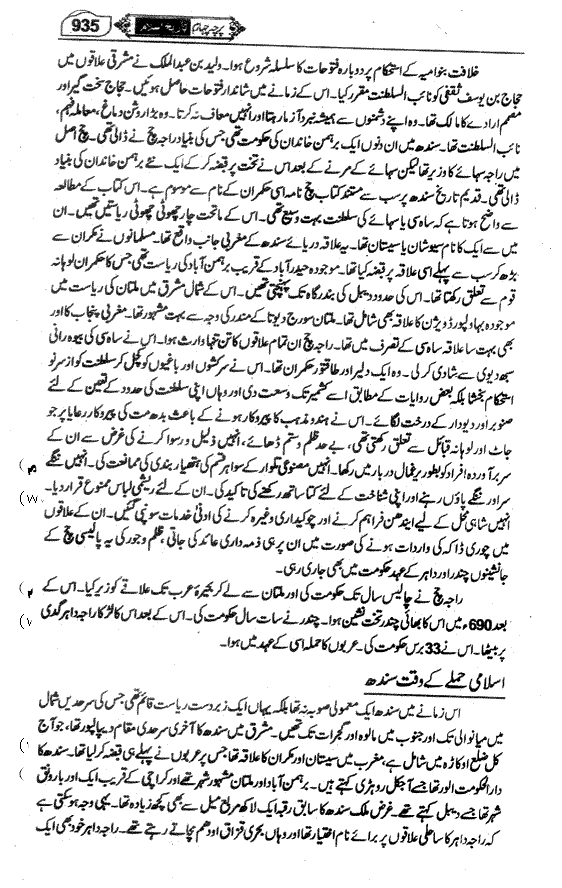 935
پرچہ جہاد تاریخ سندھ
خلافت بنو امیہ کے استحکام پر دوبارہ فتوحات کا سلسلہ شروع ہوا۔ ولید بن عبدالملک نے مشرقی علاقوں میں
حجاج بن یوسف ثقفی کو نائب السلطنت مقرر کیا۔ اس کے زمانے میں شاندار فتوحات حاصل ہوئیں۔ حجاج سخت گیر اور
مصمم ارادے کا مالک تھا۔ وہ اپنے دشمنوں سے ہمیشہ نبرد آزما رہتا اور انہیں معاف نہ کرتا۔ وہ بڑا روشن دماغ، معاملہ فہم،
نائب السلطنت تھا۔ سندھ میں ان دنوں ایک برہمن خاندان کی حکومت تھی جس کی بنیاد راجہ چچ نے ڈالی تھی۔ چچ اصل
میں راجہ سہائے کا وزیر تھا لیکن سہائے کے مرنے کے بعد اس نے تخت پر قبضہ کر کے ایک نئے برہمن خاندان کی بنیاد
ڈالی تھی۔ قدیم تاریخ سندھ پر سب سے مستند کتاب چچ نامہ اسی حکمران کے نام سے موسوم ہے۔ اس کتاب کے مطالعہ
سے واضح ہوتا ہے کہ ساہ سی یا سہائے کی سلطنت بہت وسیع تھی۔ اس کے ماتحت چار چھوٹی چھوٹی ریاستیں تھیں۔ ان
میں سے ایک کا نام سیوشان یا سیستان تھا۔ یہ علاقہ دریائے سندھ کے مغربی جانب واقع تھا۔ مسلمانوں نے مکران سے
بڑھ کر سب سے پہلے اسی علاقہ پر قبضہ کیا تھا۔ موجودہ حیدر آباد کے قریب برہمن آباد کی ریاست تھی جس کا حکمران لوہانہ
قوم سے تعلق رکھتا تھا۔ اس کی حدود دیبل کی بندرگاہ تک پہنچتی تھیں۔ اس کے شمال مشرق میں ملتان کی ریاست میں
موجودہ بہاولپور ڈویژن کا علاقہ بھی شامل تھا۔ ملتان سورج دیوتا کے مندر کی وجہ سے بہت مشہور تھا۔ مغربی پنجاب کا اور
بھی بہت سا علاقہ ساہ سی کے تصرف میں تھا۔ راجہ چچ ان تمام علاقوں کا تن تنہا وارث ہوا۔ اس نے ساہ سی کی بیوہ رانی
سبھ دیوی سے شادی کر لی۔ وہ ایک دلیر اور طاقتور حکمران تھا۔ اس نے سرکشوں اور باغیوں کو کچل کر سلطنت کو از سر نو
استحکام بخشا بلکہ بعض روایات کے مطابق اسے کشمیر تک وسعت دی اور وہاں اپنی سلطنت کی حدود کے تعین کے لئے
صنوبر اور دیودار کے درخت لگائے۔ اس نے ہندو مذہب کا پیروکار ہونے کے باعث بدھ مت کی پیروکار رعایا پر جو
جاٹ اور لوہانہ قبائل سے تعلق رکھتی تھی، بے حد ظلم و ستم ڈھائے، انہیں ذلیل و رسوا کرنے کی غرض سے ان کے
سر برآوردہ افراد کو بطور یرغمال دربار میں رکھا۔ انہیں مصنوعی تلوار کے سوا ہر قسم کی ہتھیار بندی کی ممانعت کی۔ انہیں ننگے
سر اور ننگے پاؤں رہنے اور اپنی شناخت کے لئے کتا ساتھ رکھنے کی تاکید کی۔ ان کے لئے ریشمی لباس ممنوع قرار دیا۔
انہیں شاہی محل کے لیے ایندھن فراہم کرنے اور چوکیداری وغیرہ کرنے کی ادنیٰ خدمات سونپی گئیں۔ ان کے علاقوں
میں چوری ڈاکہ کی واردات ہونے کی صورت میں ان پر ہی ذمہ داری عائد کی جاتی، ظلم و جور کی یہ پالیسی چچ کے
جانشینوں چندر اور داہر کے عہد حکومت میں بھی جاری رہی۔
راجہ چچ نے چالیس سال تک حکومت کی اور ملتان سے لے کر بحیرۂ عرب تک علاقے کو زیر کیا۔ اس کے
بعد 690ء میں اس کا بھائی چندر تخت نشین ہوا۔ چندر نے سات سال حکومت کی۔ اس کے بعد اس کا لڑکا راجہ داہر گدی
پر بیٹھا۔ اس نے 33 برس حکومت کی۔ عربوں کا حملہ اسی کے عہد میں ہوا۔
اسلامی حملے کے وقت سندھ
اس زمانے میں سندھ ایک معمولی صوبہ نہ تھا بلکہ یہاں ایک زبردست ریاست قائم تھی جس کی سرحدیں شمال
میں میانوالی تک اور جنوب میں مالوہ اور گجرات تک تھیں۔ مشرق میں سندھ کا آخری سرحدی مقام دیپالپور تھا، جو آج
کل ضلع اوکاڑہ میں شامل ہے، مغرب میں سیستان اور مکران کا علاقہ تھا جس پر عربوں نے پہلے ہی قبضہ کر لیا تھا۔ سندھ کا
دارالحکومت الور تھا جسے آجکل روہڑی کہتے ہیں۔ برہمن آباد اور ملتان مشہور شہر تھے اور کراچی کے قریب ایک اور بارونق
شہر تھا جسے دیبل کہتے تھے۔ غرض ملک سندھ کا سابق رقبہ ایک لاکھ مربع میل سے بھی کچھ زیادہ تھا۔ یہی وجہ ہو سکتی ہے
کہ راجہ داہر کا ساحلی علاقوں پر برائے نام اختیار تھا اور وہاں بحری قزاق اودھم مچاتے رہتے تھے۔ راجہ داہر خود بھی ایک